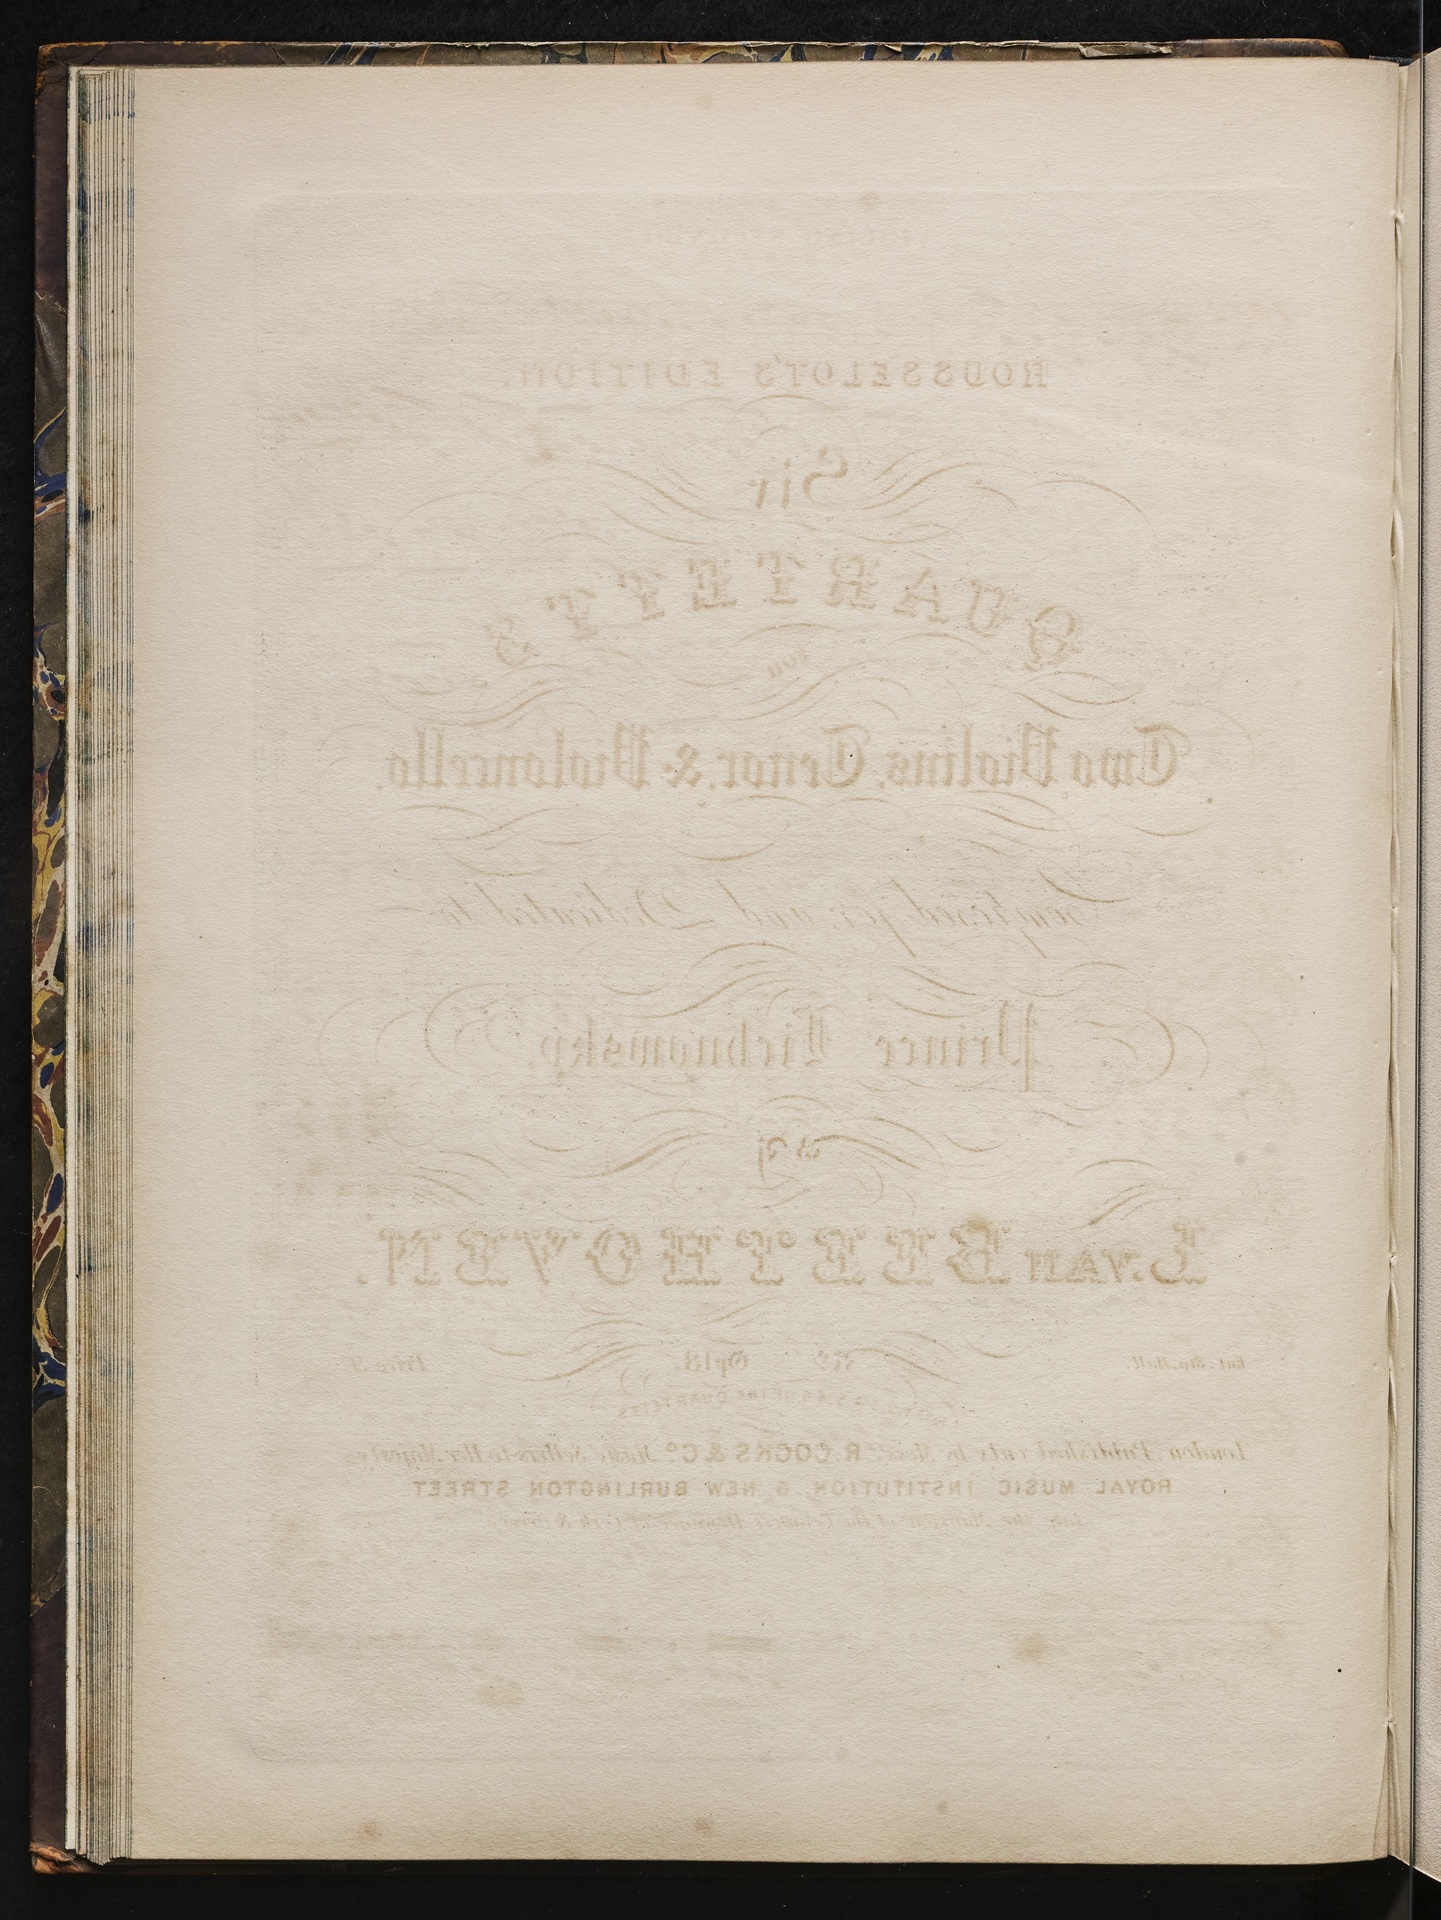 ROUSSELOT'S EDITION.
Six
QUARTETTS
FOR
Two Violins, Tenor, & Violoncello.
Composed for, and Dedicated to
Prince Lichnowsky.
By
L. VAN BEETHOVEN.
Ent. Sta. Hall. Nº Op 18. Price
QUARTETTS
London, Published only by Messrs R COCKS & Cº Music Sellers to Her Majesty
ROYAL MUSIC INSTITUTION, 6, NEW BURLINGTON STREET